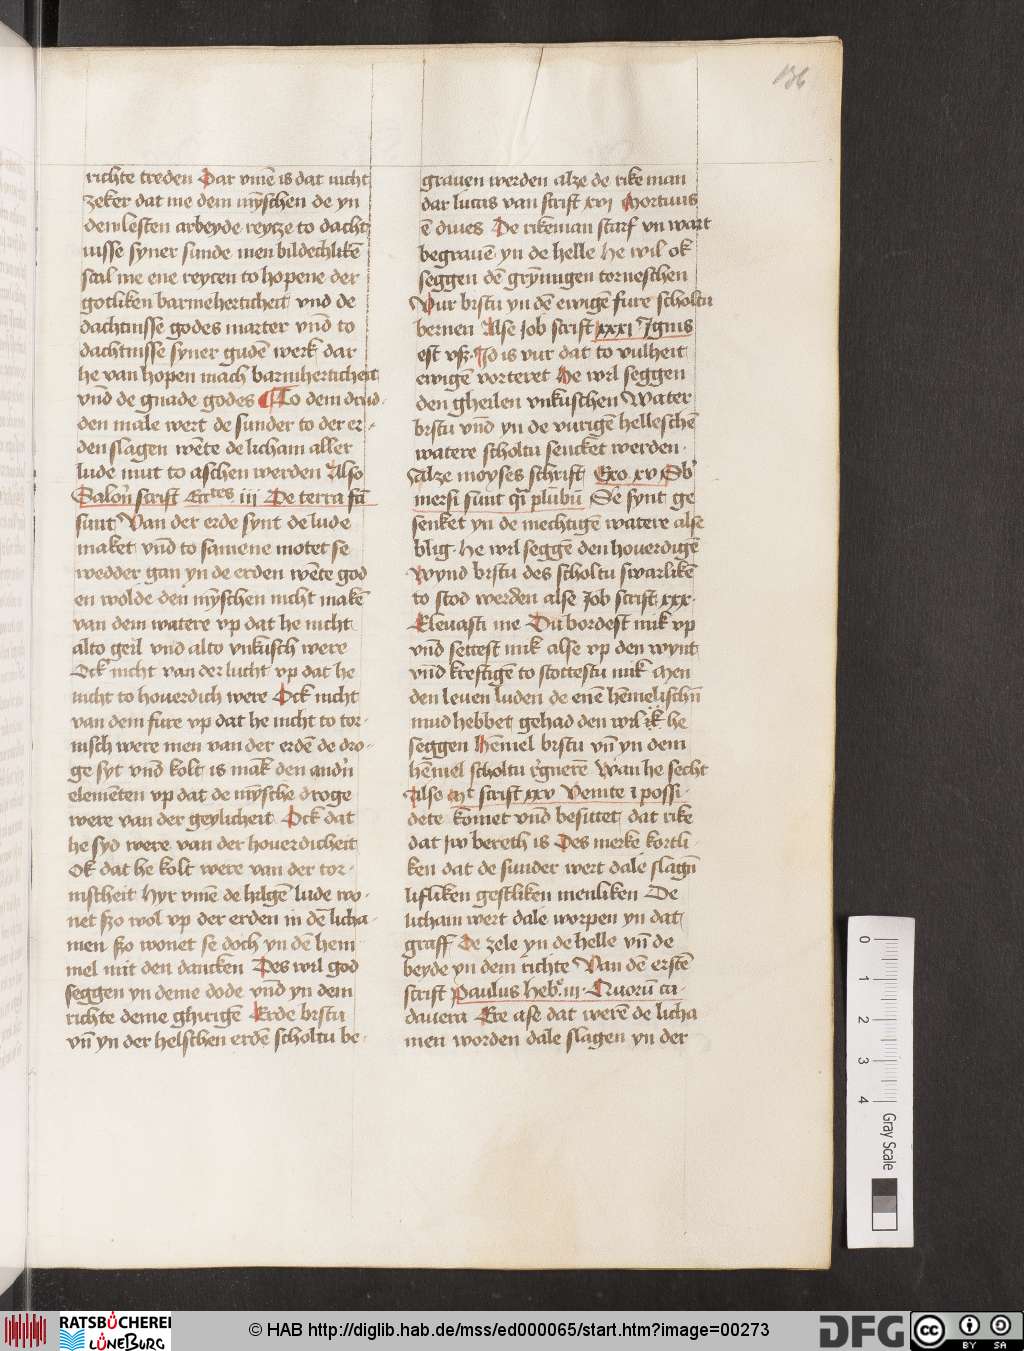 136
richte treden Dar vm̄e is dat nicht
zeker dat me dem mȳschen de yn
dem lesten arbeyde reytze to dacht
nisse syner sunde men bildechlikē
scal me ene reycen to hopene der
gotliken barmeherticheit vnd de
dachtnisse godes marter vnd to
dachtnisse syner gudē werk dar
he van hopen mach barmherticheit
vnd de gnade godes To dem drud
den male wert de sunder to der er
den slagen wēte de licham aller
lude mut to aschen werden Also
Salom̄ scrift Ecc̄tes iii De terra fc̄i
sunt Van der erde synt de lude
maket vnd to samene motet se
wedder gan yn de erden wēte god
en wolde den mȳschen nicht makē
van dem watere vp dat he nicht
alto geil vnd alto vnkusch were
Ock nicht van der lucht vp dat he
nicht to houerdich were Ock nicht
van dem fure vp dat he nicht to tor
nisch were men van der erdē de dro
ge syt vnd kolt is mak den andn̄
elemēten vp dat de mȳsche droge
were van der geylicheit Ock dat
he syd were van der houerdicheit
Ok dat he kolt were van der tor
nistheit Hyr vm̄e de hilgē lude wo
net szo wol vp der erden in dē licha
men szo wonet se doch yn dē hem
mel mit den dancken Des wil god
seggen yn deme dode vnd yn dem
richte deme ghirigē Erde brstu
vn̄ yn der helschen erdē scholtu be
grauen werden alze de rike man
dar lucas van scrift xvi Mortuus
ē diues De rikeman starf vn wart
begrauē yn de helle He wil ok
seggen dē grȳnigen torneschen
Vur brstu yn dē ewigē fure scholtu
bernen Alse Job scrift xxxi Ignis
est vsz Id is vur dat to vulheit
ewigē vorteret He wil seggen
den gheilen vnkuschen Water
brstu vnd yn de vurigē helleschē
watere scholtu sencket werden
Alze moyses schrift Exo xv Sb
mersi sunt q̄i plūbū Se synt ge
senket yn de mechtigē watere alse
blig He wil seggē den houerdigē
Wynd brstu des scholtu swarlikē
to stod werden alse Job scrift xxx
Eleuasti me Du bordest mik vp
vnd settest mik alse vp den wynt
vnd kreftigē to stottestu mik Men
den leuen luden de enē hēmelischn̄
mud hebbet gehad den wil ik he
seggen Hēmel brstu vn̄ yn dem
hēmel scholtu r̄gnerē Wan he secht
Also Mt scrift xxv Venite i possi
dete komet vnd besittet dat rike
dat iw bereth is Des merke kortli
ken dat de sunder wert dale slagn̄
lifliken gestliken menliken De
licham wert dale worpen yn dat
graff De zele yn de helle vn̄ de
beyde yn dem richte Van dē erstē
scrift Paulus Heb iii Quorū ca
dauera Ere ase dat werē de licha
men worden dale slagen yn der
0
1
2
3
4
Gray Scale
RATSBÜCHEREI
LÜNEBURG
© HAB http://diglib.hab.de/mss/ed000065/start.htm?image=00273
DFG
CC
BY SA